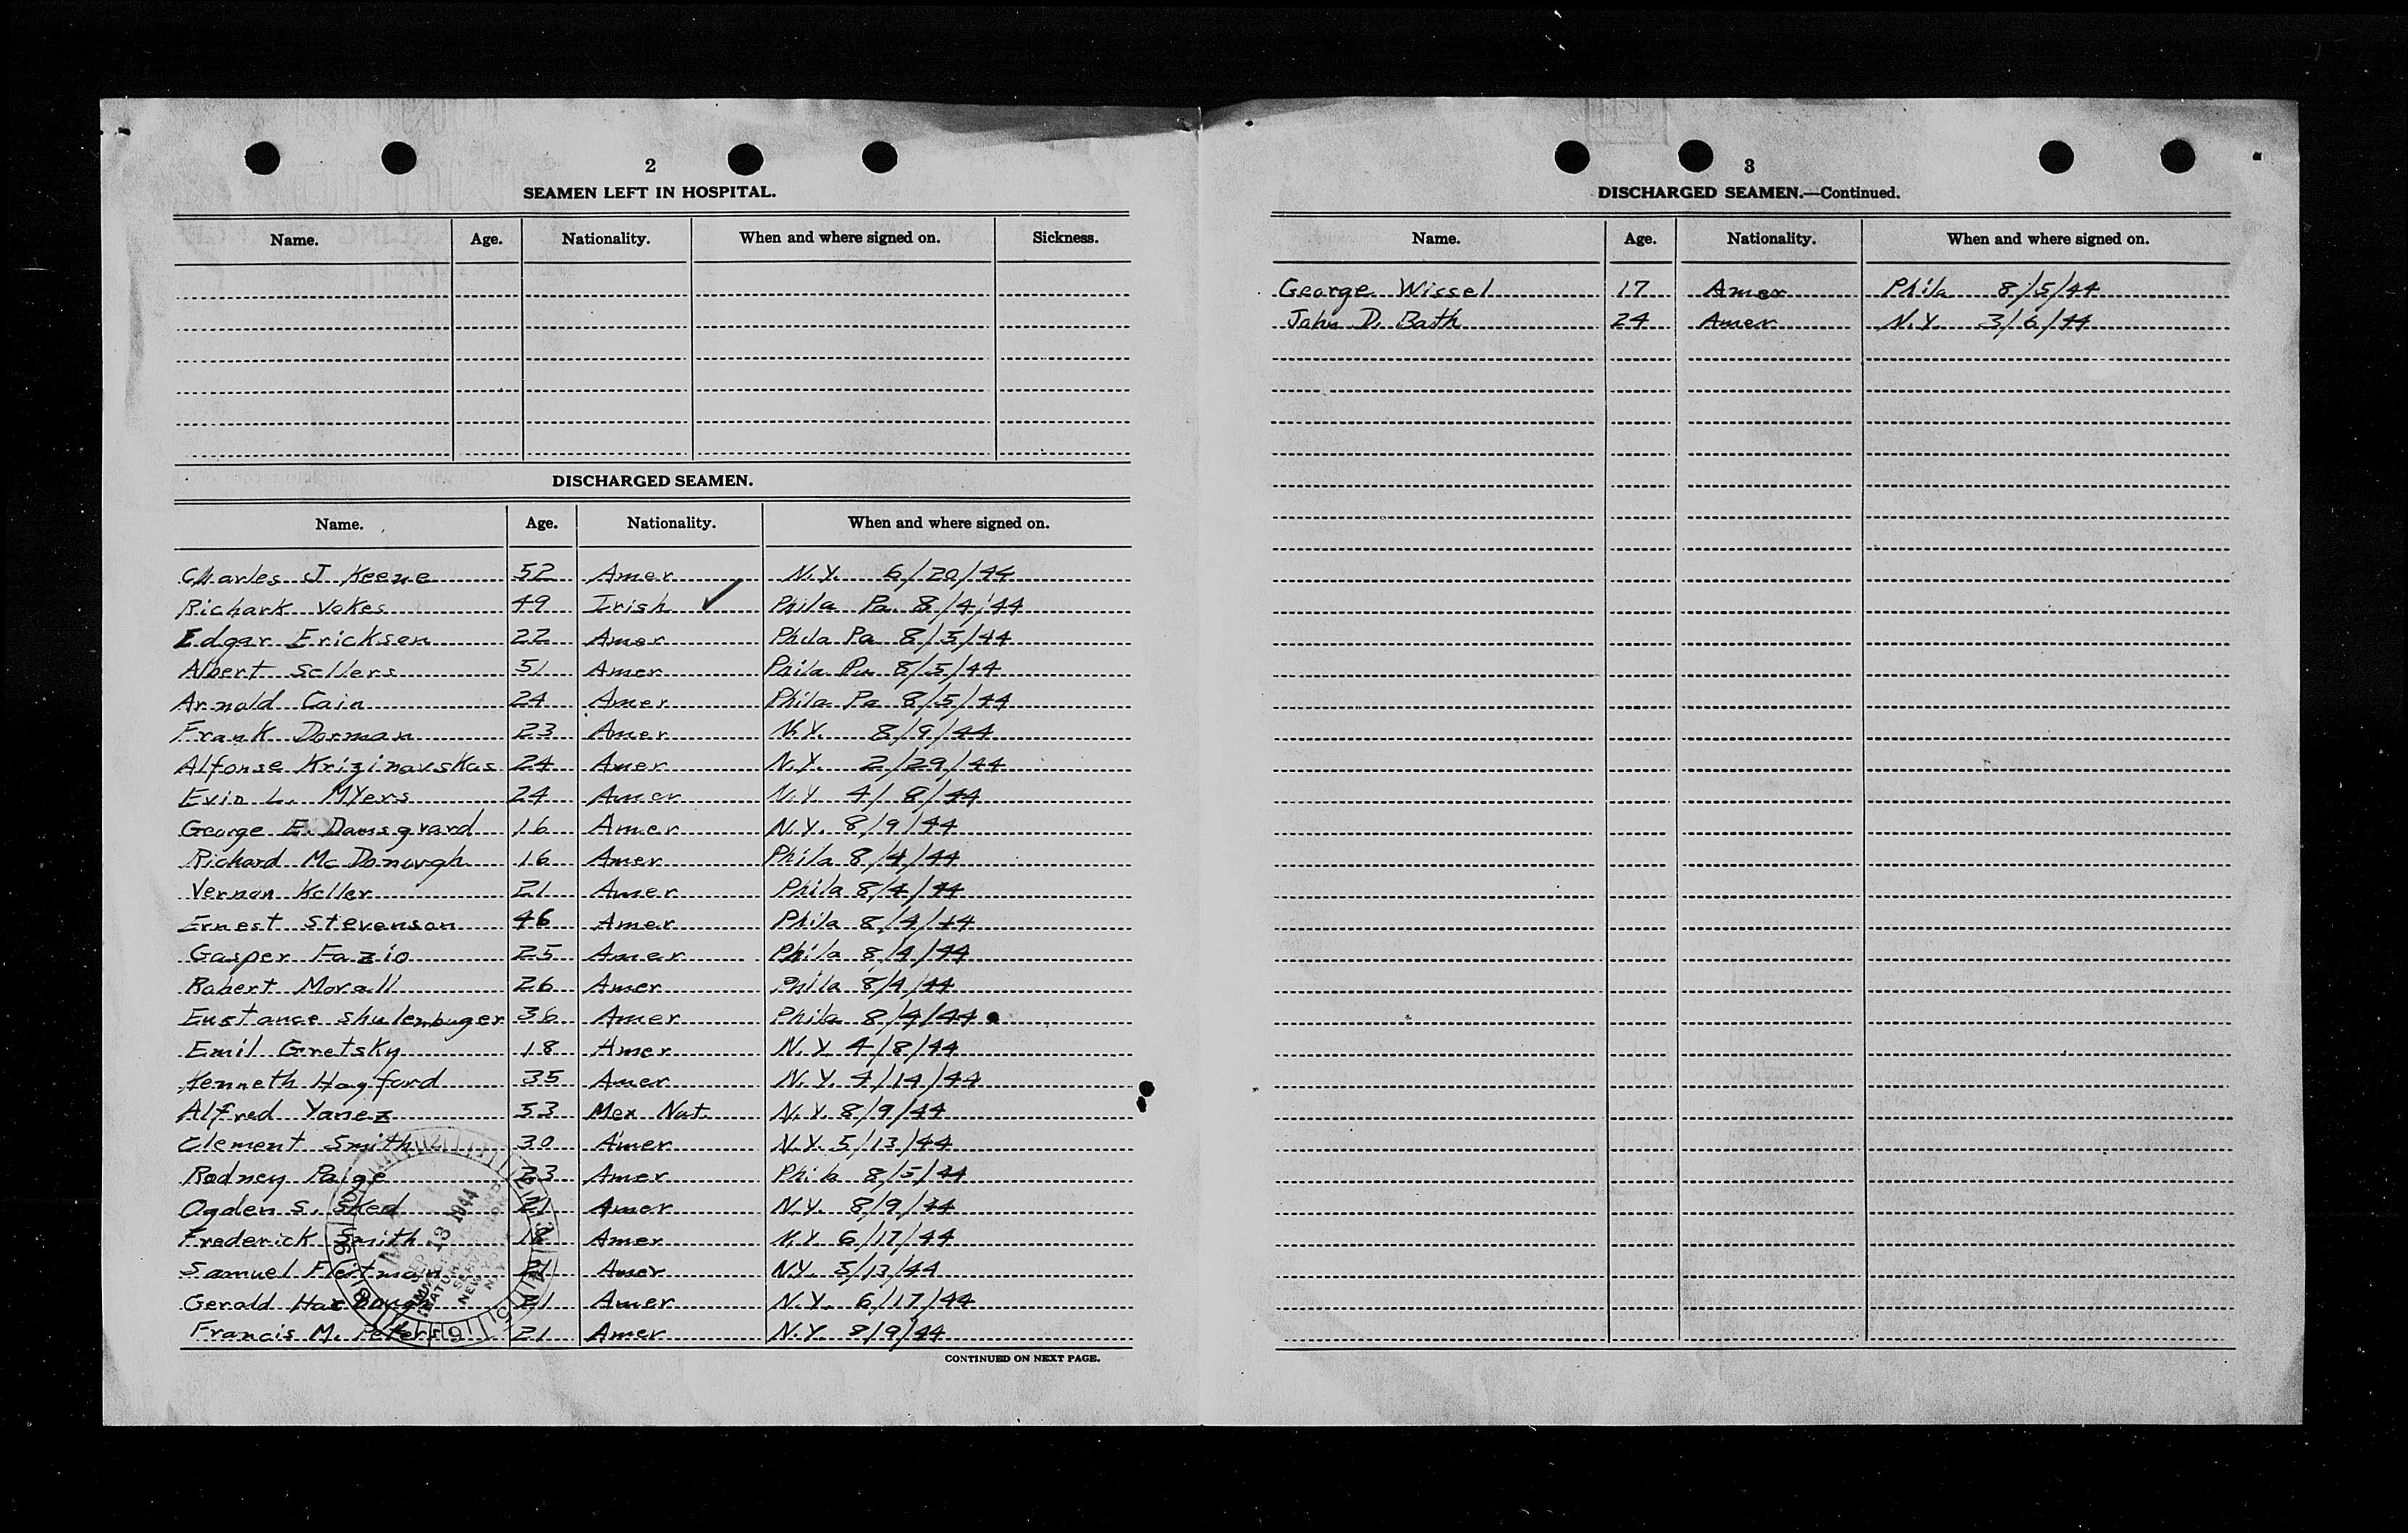 2
SEAMEN LEFT IN HOSPITAL.
Name. Age. Nationality. When and where signed on. Sickness.
DISCHARGED SEAMEN.
Name. Age. Nationality. When and where signed on.
Charles J Keene 52 Amer N.Y. 6/20/44
Richark Vokes 49 Irish ✓ Phila Pa. 8/4/44
Edgar Ericksen 22 Amer Phila Pa 8/5/44
Albert Sellers 51 Amer Phila Pa 8/5/44
Arnold Cain 24 Amer Phila Pa 8/5/44
Frank Dorman 23 Amer N.Y. 8/9/44
Alfonse Krizinavskas 24 Amer N.Y. 2/29/44
Evin L. Myers 24 Amer N.Y. 4/8/44
George E. Damsgvard 16 Amer N.Y. 8/9/44
Richard McDonurgh 16 Amer Phila 8/4/44
Vernon Keller 21 Amer Phila 8/4/44
Ernest Stevenson 46 Amer Phila 8/4/44
Gasper Fazio 25 Amer Phila 8/4/44
Robert Morall 26 Amer Phila 8/4/44
Eustance Shulembuger 36 Amer Phila 8/4/44
Emil Gretsky 18 Amer N.Y. 4/8/44
Kenneth Hayford 35 Amer N.Y. 4/14/44
Alfred Yanez 53 Mex Nat. N.Y. 8/9/44
Clement Smith 30 Amer N.Y. 5/13/44
Rodney Paige 23 Amer Phila 8/5/44
Ogden S. Sked 21 Amer N.Y. 8/9/44
Frederick Smith 18 Amer N.Y. 6/17/44
Samuel 21 Amer N.Y. 5/13/44
Gerald 21 Amer N.Y. 6/17/44
Francis M. Peters 21 Amer N.Y. 8/9/44
CONTINUED ON NEXT PAGE.
3
DISCHARGED SEAMEN.—Continued.
Name. Age. Nationality. When and where signed on.
George Wissel 17 Amer Phila 8/5/44
John D. Bath 24 Amer N.Y. 3/6/44